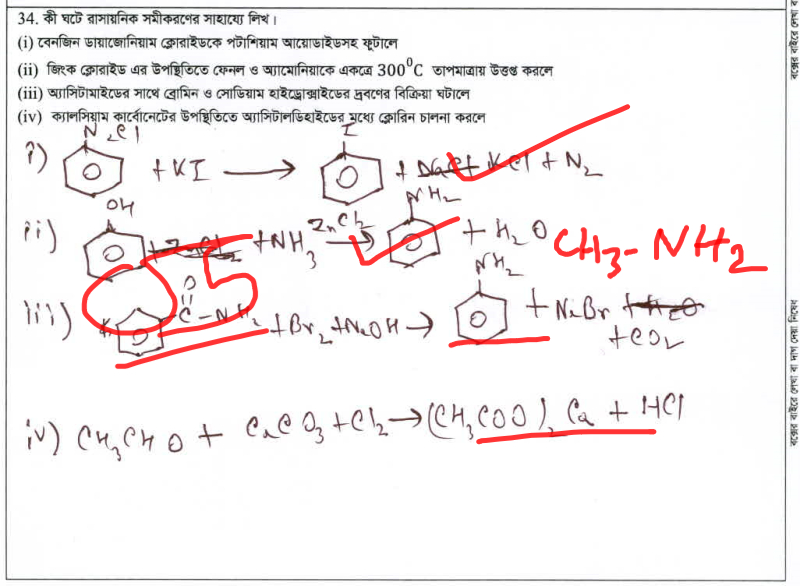 34. কী ঘটে রাসায়নিক সমীকরণের সাহায্যে লিখ।
(i) বেনজিন ডায়াজোনিয়াম ক্লোরাইডকে পটাশিয়াম আয়োডাইডসহ ফুটালে
(ii) জিংক ক্লোরাইড এর উপস্থিতিতে ফেনল ও অ্যামোনিয়াকে একত্রে 300⁰C তাপমাত্রায় উত্তপ্ত করলে
(iii) অ্যাসিটামাইডের সাথে ব্রোমিন ও সোডিয়াম হাইড্রোক্সাইডের দ্রবণের বিক্রিয়া ঘটালে
(iv) ক্যালসিয়াম কার্বোনেটের উপস্থিতিতে অ্যাসিটালডিহাইডের মধ্যে ক্লোরিন চালনা করলে
N₂Cl I
i) + KI → + KCl + N₂
OH NH₂
ii) + NH₃ ZnCl₂ → + H₂O CH₃-NH₂
5
O NH₂
iii) C-NH₂ + Br₂ + NaOH → + NaBr
+ CO₂
iv) CH₃CHO + CaCO₃ + Cl₂ → (CH₃COO)₂Ca + HCl
বক্সের বাইরে লেখা বা দাগ দেয়া নিষেধ